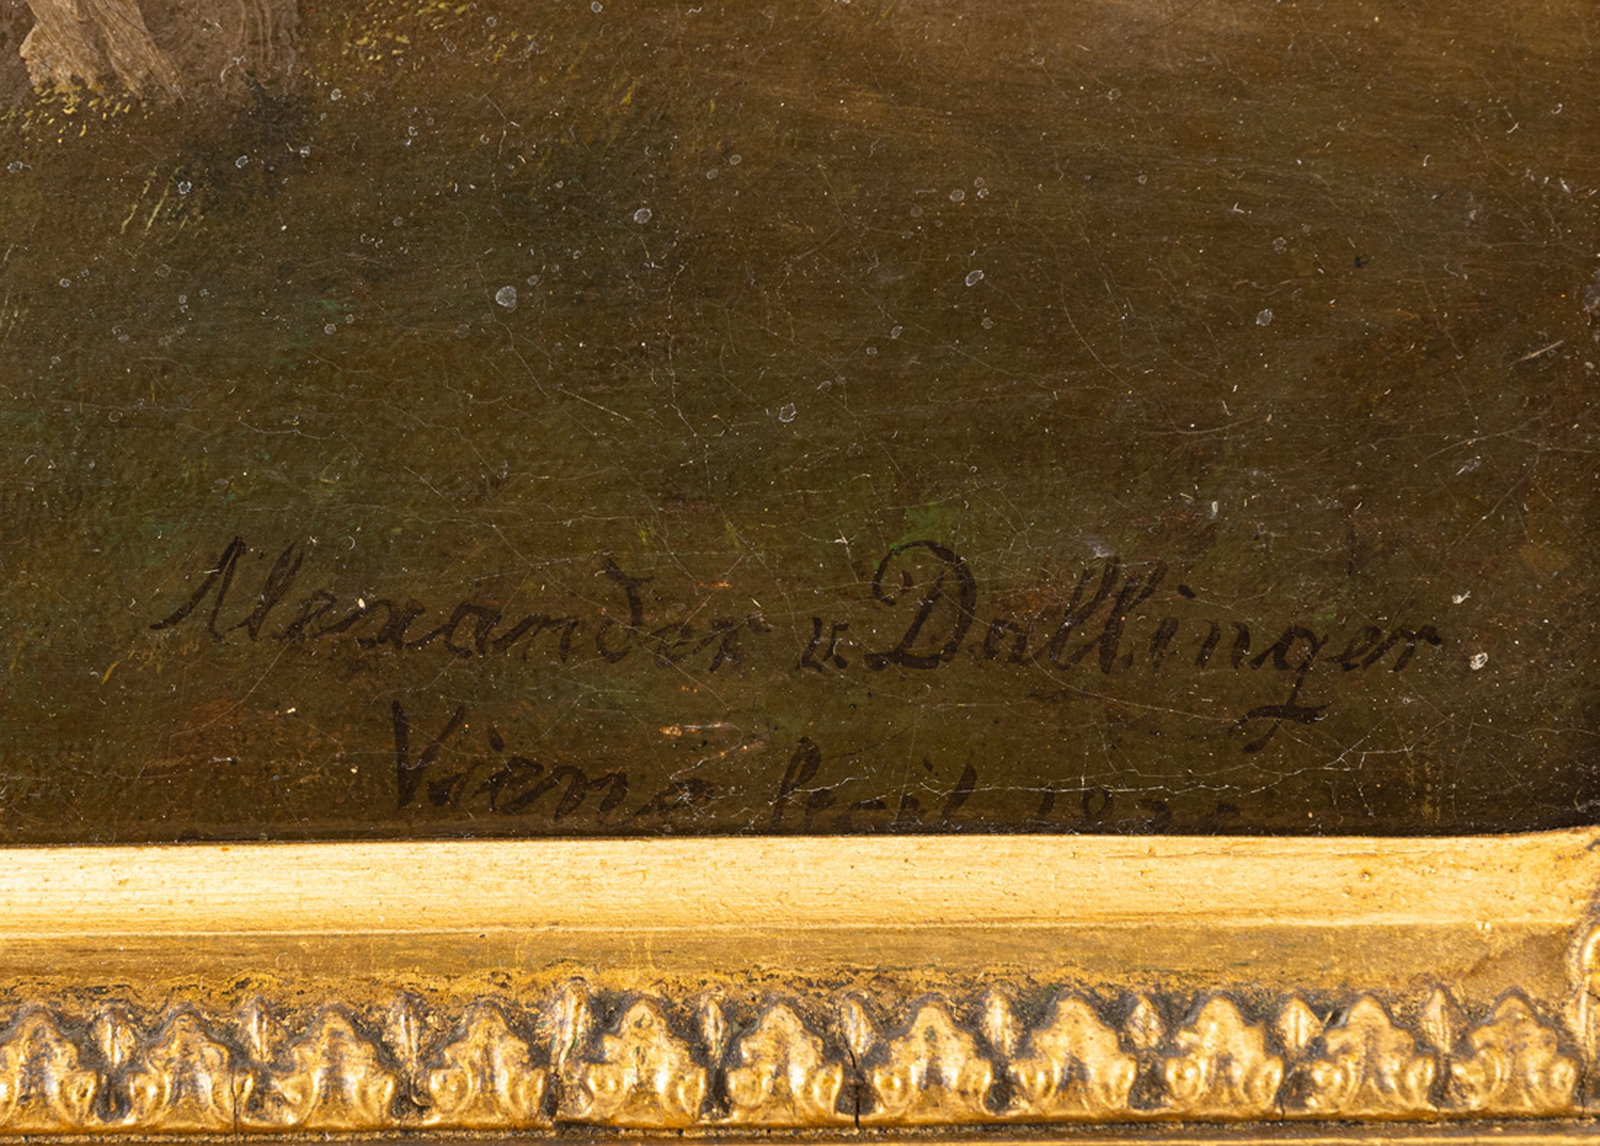 Alexander v. Dallinger
Viena April